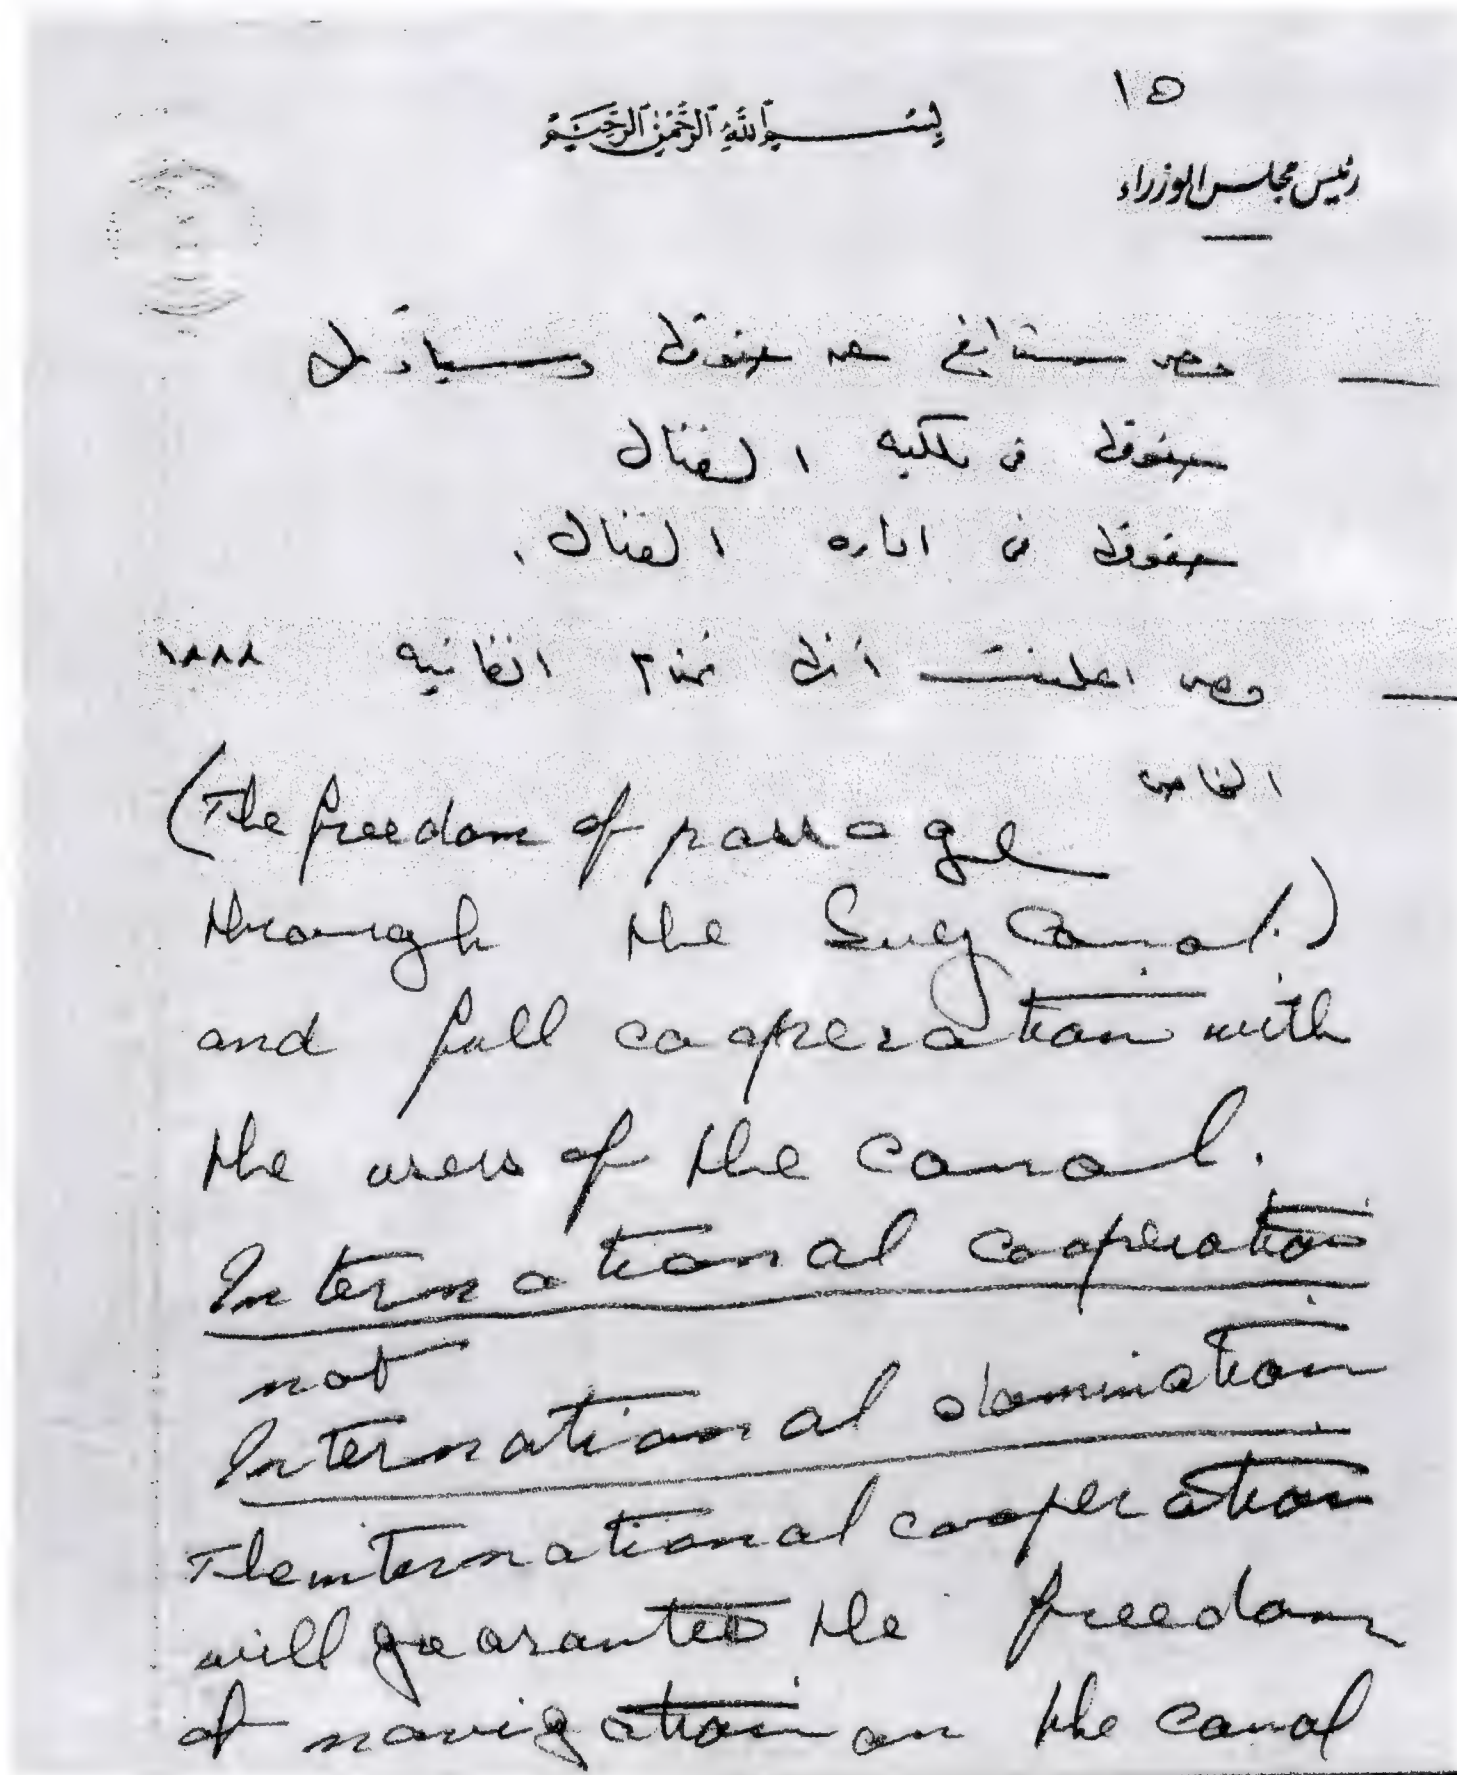 ١٥
بسم الله الرحمن الرحيم
رئيس مجلس الوزراء
— مصر ستدافع عن حقوقها وسيادتها
حقوقها فى ملكيه القنال
حقوقها فى اداره القنال.
— مصر اعلنت أنها تحترم اتفاقيه ١٨٨٨
الخاصه
(The freedom of passage
through the Suez Canal.)
and full cooperation with
the users of the canal.
International cooperation
not
International domination
The international cooperation
will guarantee the freedom
of navigation on the canal